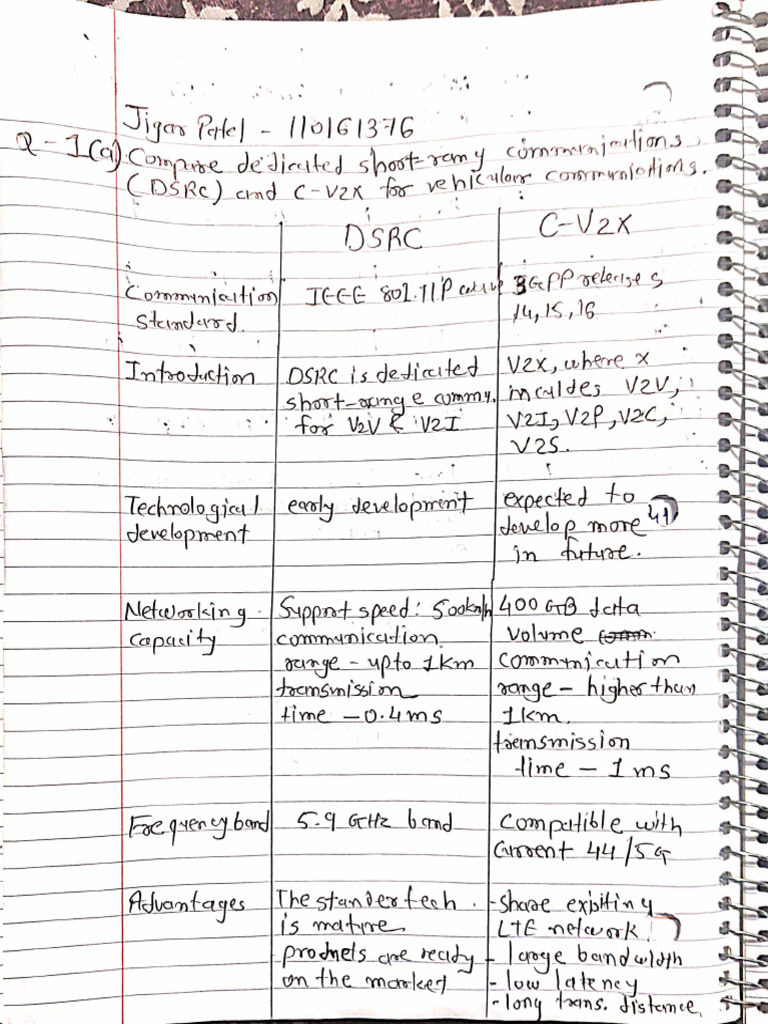 Jigar Patel - 110161376
Q-1(a) Compare dedicated short-rang communications
(DSRC) and C-V2X for vehicular communications.
DSRC
C-V2X
Communication
standard.
IEEE 802.11P
3GPP releises
14,15,16
Introduction
DSRC is dedicated
short-range commu.
for V2V & V2I
V2X, where x
inculdes V2V,
V2I, V2P, V2C,
V2S.
Technological
development
early development
expected to
develop more
in future.
Networking
capacity
Support speed: 500km/h
communication
range - upto 1km
transmission
time - 0.4ms
400 GB data
volume
communication
range - higher than
1km.
transmission
time - 1ms
Frequency band
5.9 GHz band
Compatible with
Current 4G/5G
Advantages
The stander tech.
is mature
products are ready
on the market
- Share exbiting
LTE network.
- large bandwidth
- low latency
- long trans. distance.